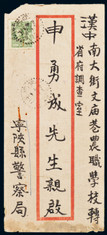 漢中南大街文庙巷農職學校轉
省府調查室
申勇成先生親啟
寧陜縣警察局